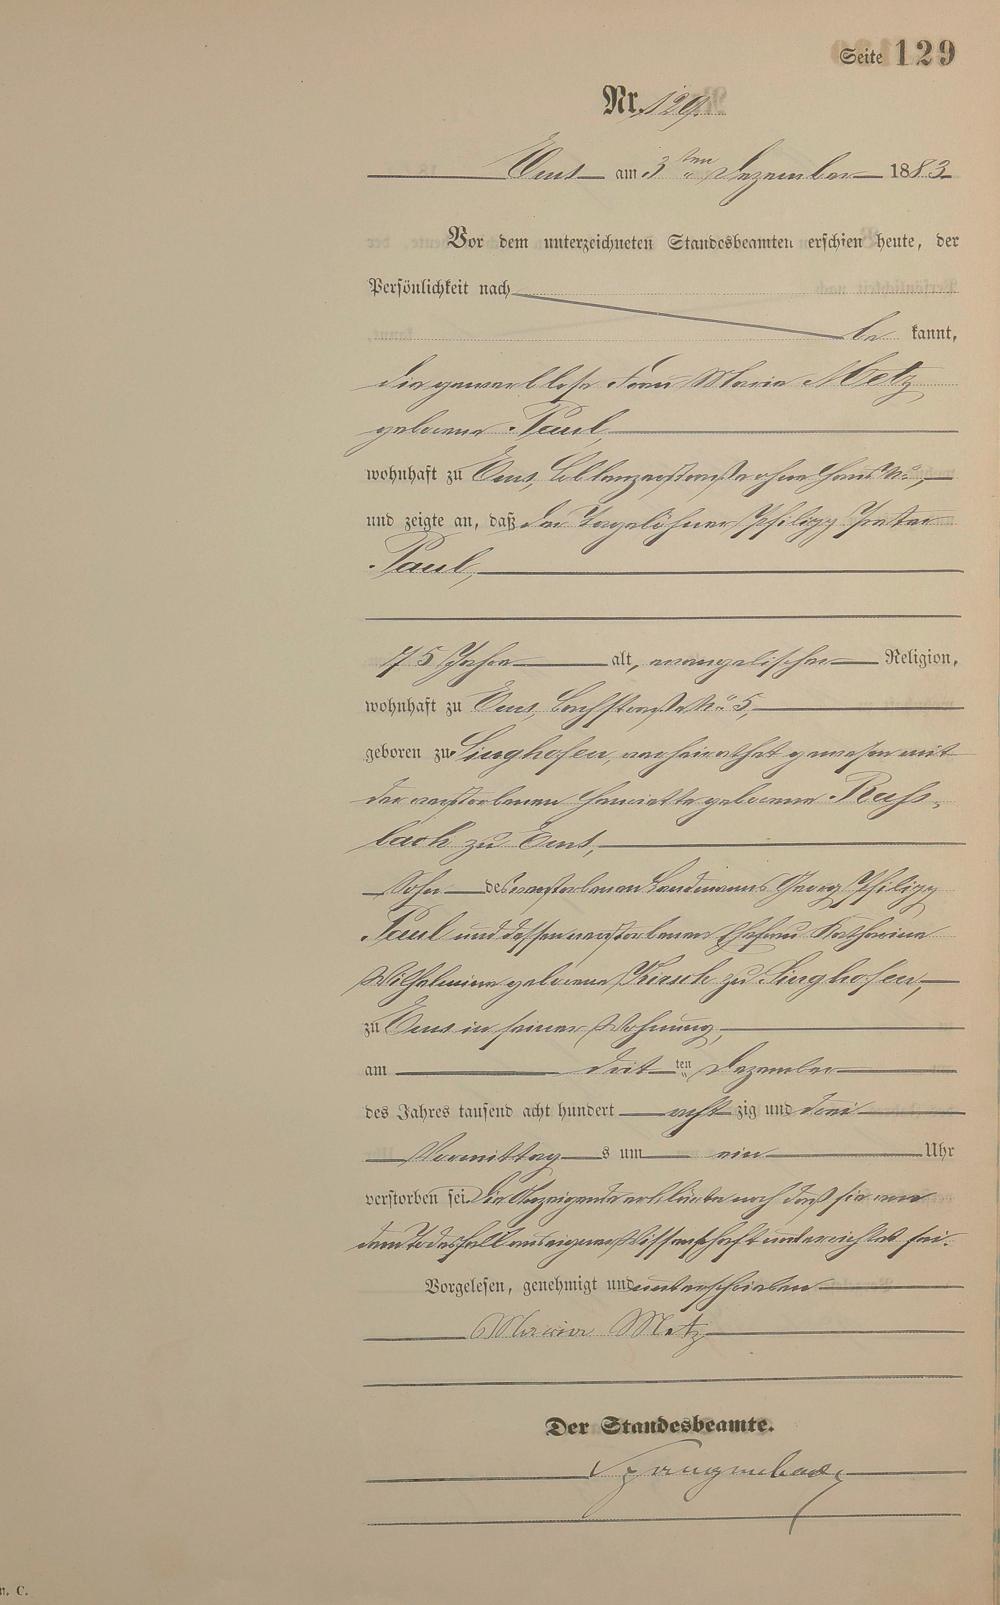 Seite 129
Nr. 129.
Ems am 3ten Dezember 1883
Vor dem unterzeichneten Standesbeamten erschien heute, der
Persönlichkeit nach
be kannt,
die gewerblose Frau Marie Metz
geborene Paul,
wohnhaft zu Ems, Coblenzerstraße ohne Haus No,
und zeigte an, daß der Tagelöhner Philipp Peter
Paul,
75 Jahre alt, evangelischer Religion,
wohnhaft zu Ems, Bachstraße No 5,
geboren zu Singhofen, verheirathet gewesen mit
der verstorbenen Henriette geborene Russ-
bach zu Ems,
Sohn des verstorbenen Landmanns Georg Philipp
Paul und dessen verstorbenen Ehefrau Katharine
Wilhelmine geborene Kirsch zu Singhofen,
zu Ems in seiner Wohnung,
am drit ten Dezember
des Jahres tausend acht hundert acht zig und drei
Vormittag s um ein Uhr
verstorben sei. Die Anzeigende erklärte noch daß sie von
dem Todesfall aus eigener Wissenschaft unterrichtet sei.
Vorgelesen, genehmigt und unterschrieben
Marie Metz
Der Standesbeamte.
n. C.